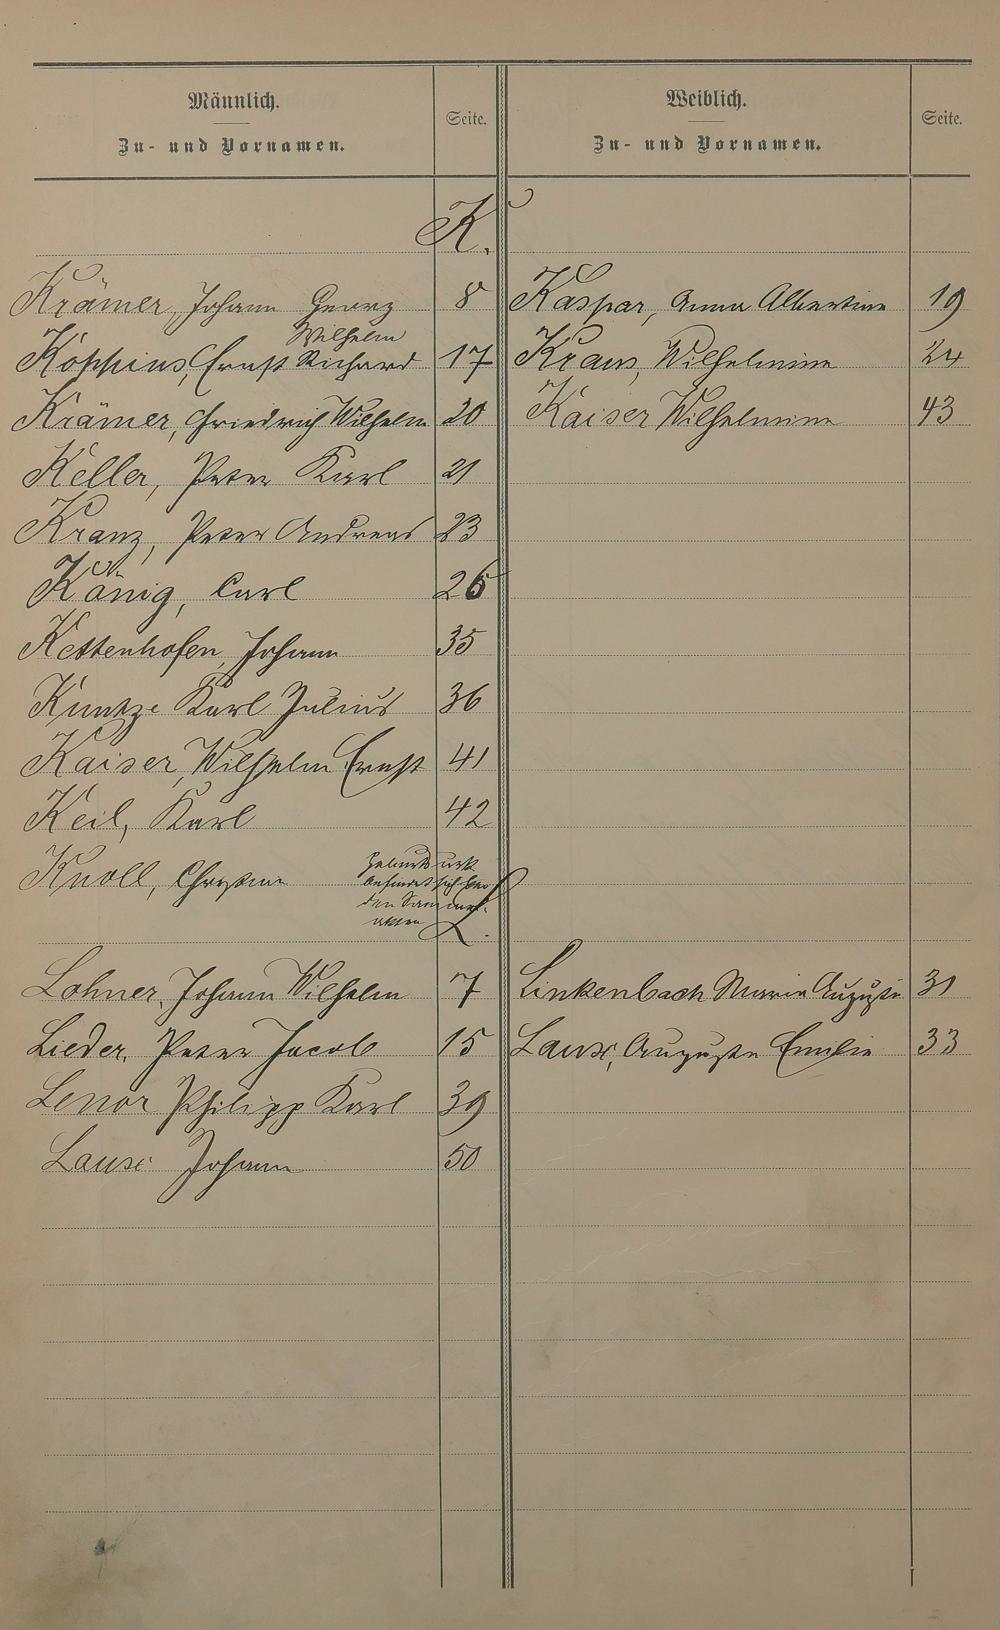 Männlich.
Zu- und Vornamen.
Seite.
Weiblich.
Zu- und Vornamen.
Seite.
K.
Krämer, Johann Georg 8
Wilhelm
Köppius, Ernst Richard 17
Krämer, Friedrich Wilhelm 20
Keller, Peter Karl 21
Kranz, Peter Andreas 23
König, Carl 26
Kettenhofen, Johann 35
Kuntze Karl Julius 36
Kaiser, Wilhelm Ernst 41
Keil, Karl 42
Knoll, Christian
Geburtsurk
befindet sich bei
den Sammel-
akten
Kaspar, Anna Albertine 19
Kraus, Wilhelmine 24
Kaiser Wilhelmine 43
L.
Lohner, Johann Wilhelm 7
Lieder, Peter Jacob 15
Lenor Philipp Karl 39
Laux Johann 50
Linkenbach Marie Auguste 31
Laux, Auguste Emilie 33